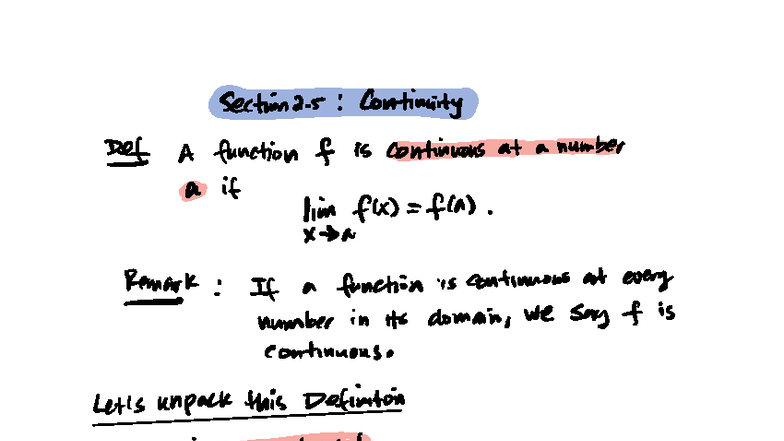 Section 2.5 : Continuity
Def A function f is continuous at a number
a if
lim f(x) = f(a) .
x→a
Remark : If a function is continuous at every
number in its domain, we say f is
continuous.
Let's unpack this Definiton